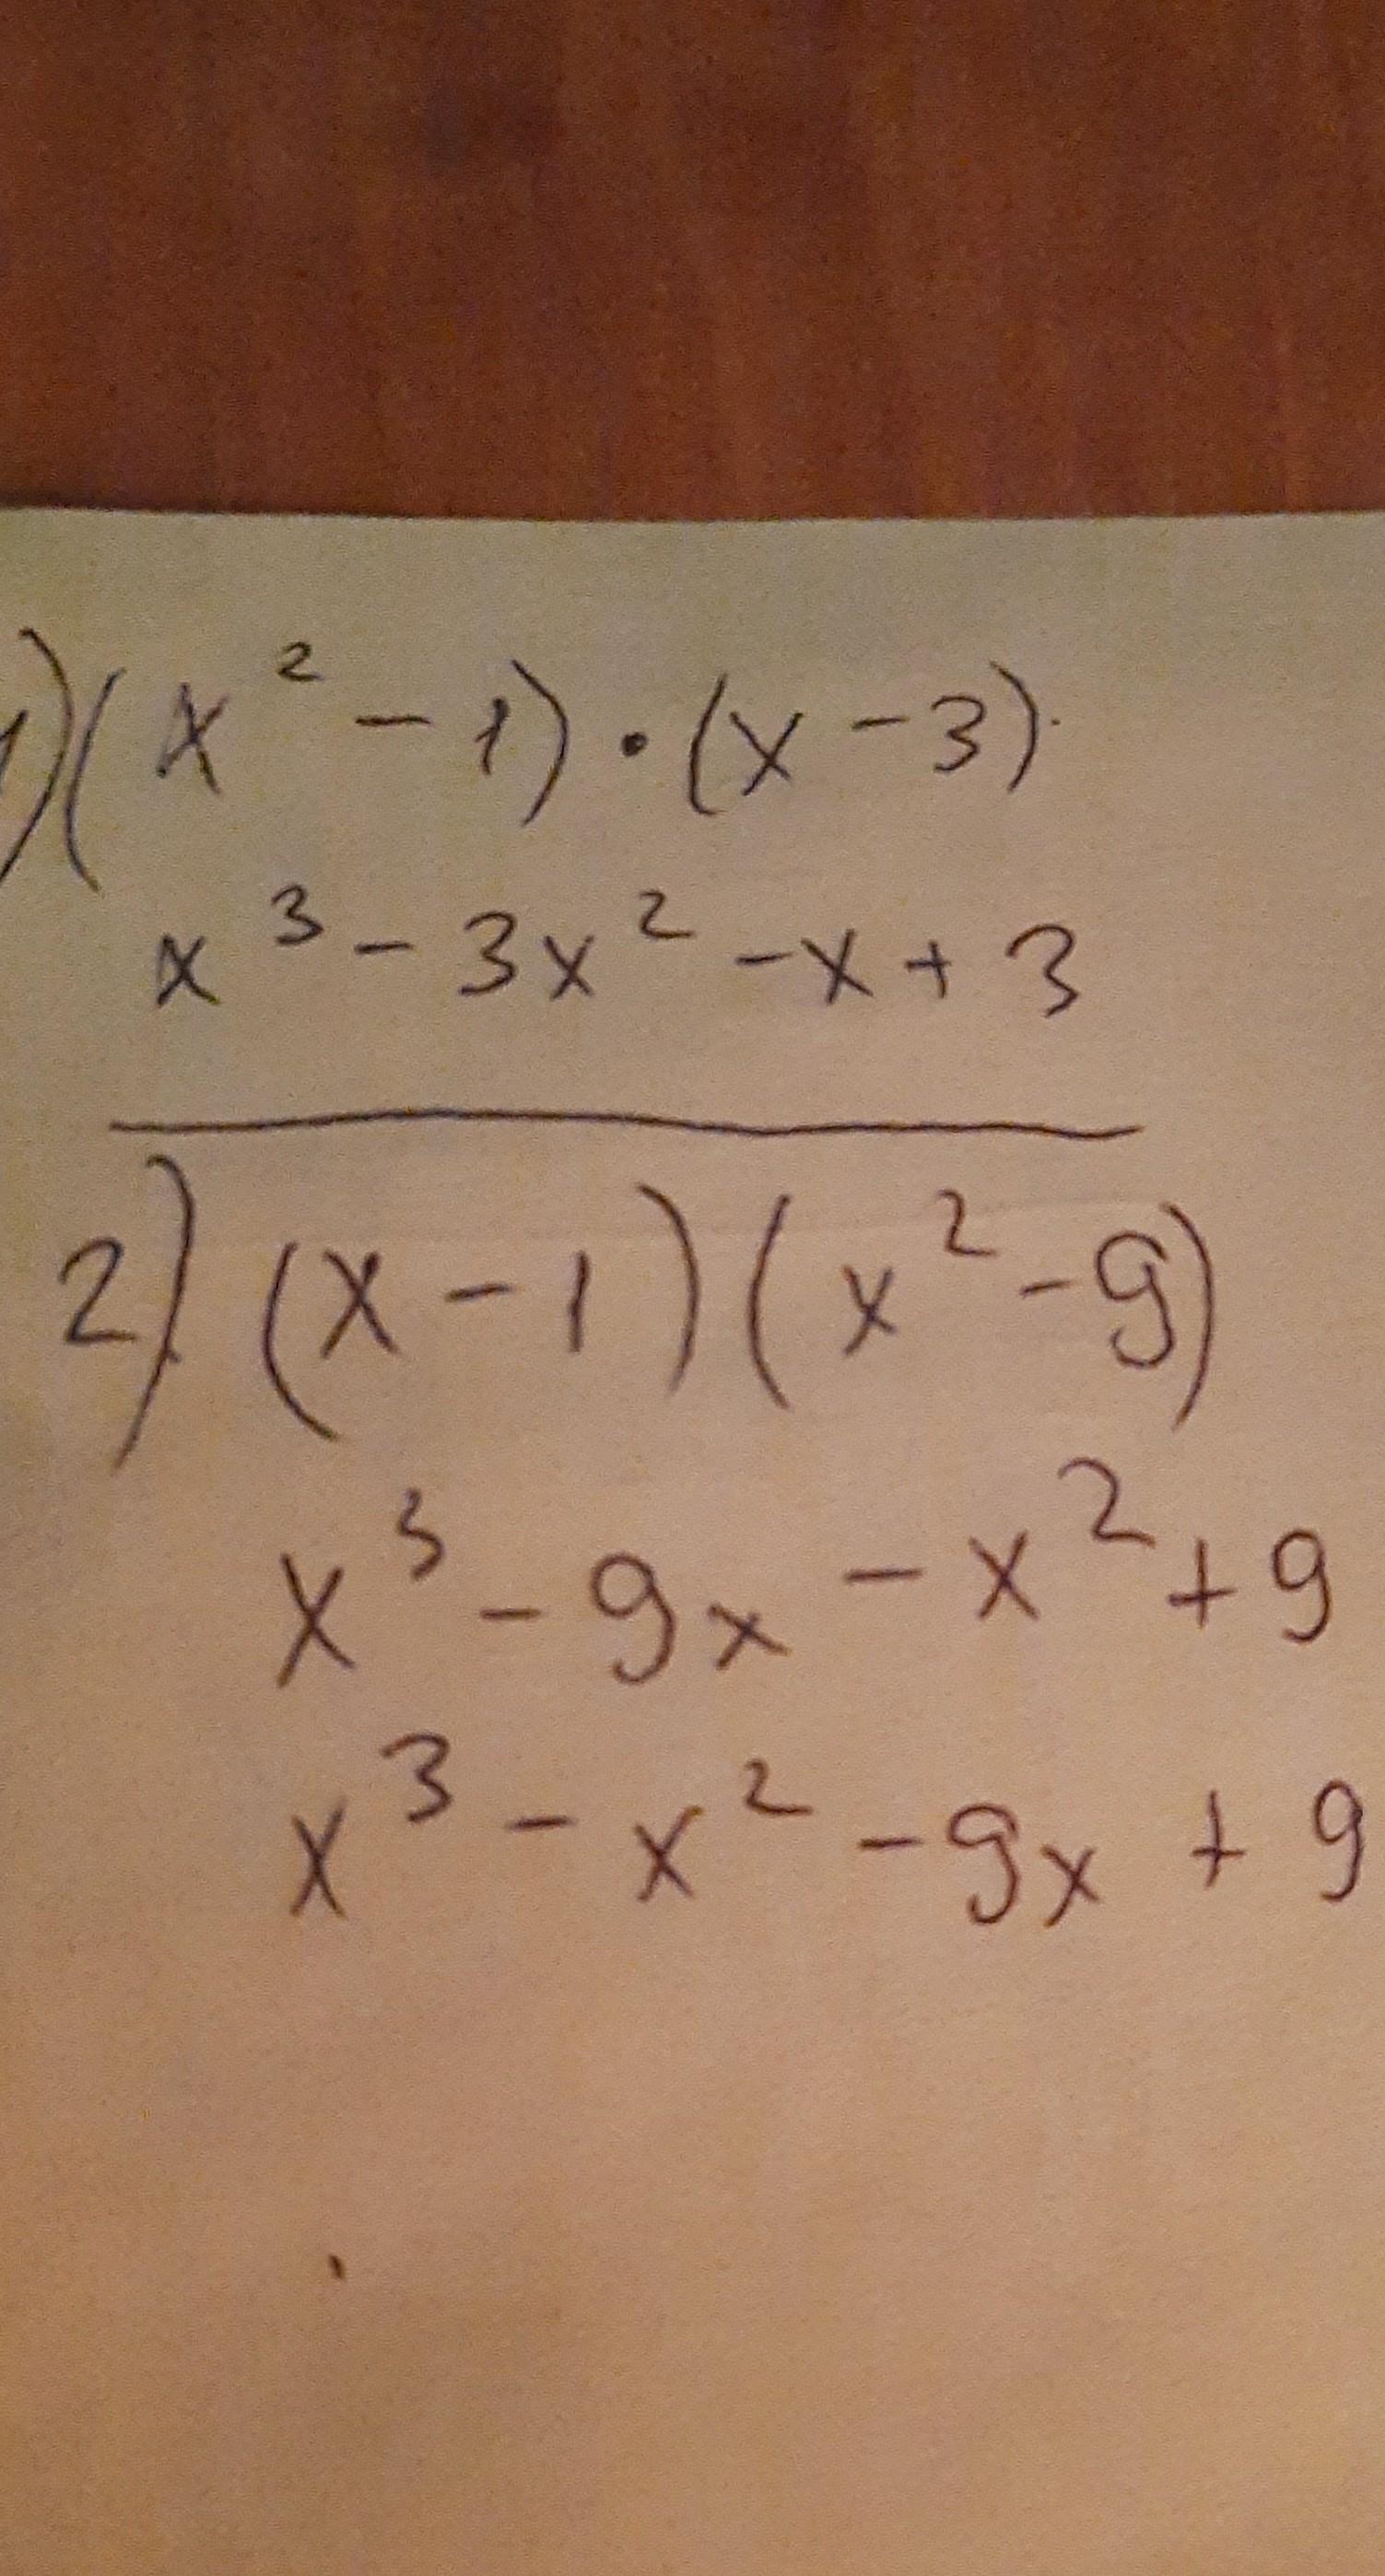 1) (x² - 1) · (x - 3)
x³ - 3x² - x + 3
2) (x - 1) (x² - 9)
x³ - 9x - x² + 9
x³ - x² - 9x + 9